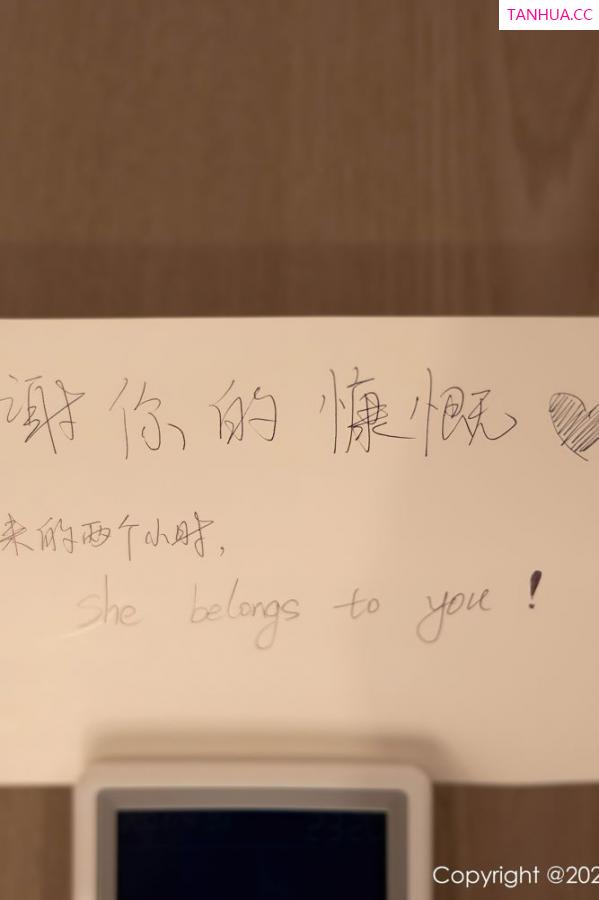 TANHUA.CC
谢你的慷慨
来的两个小时，
She belongs to you!
Copyright @202